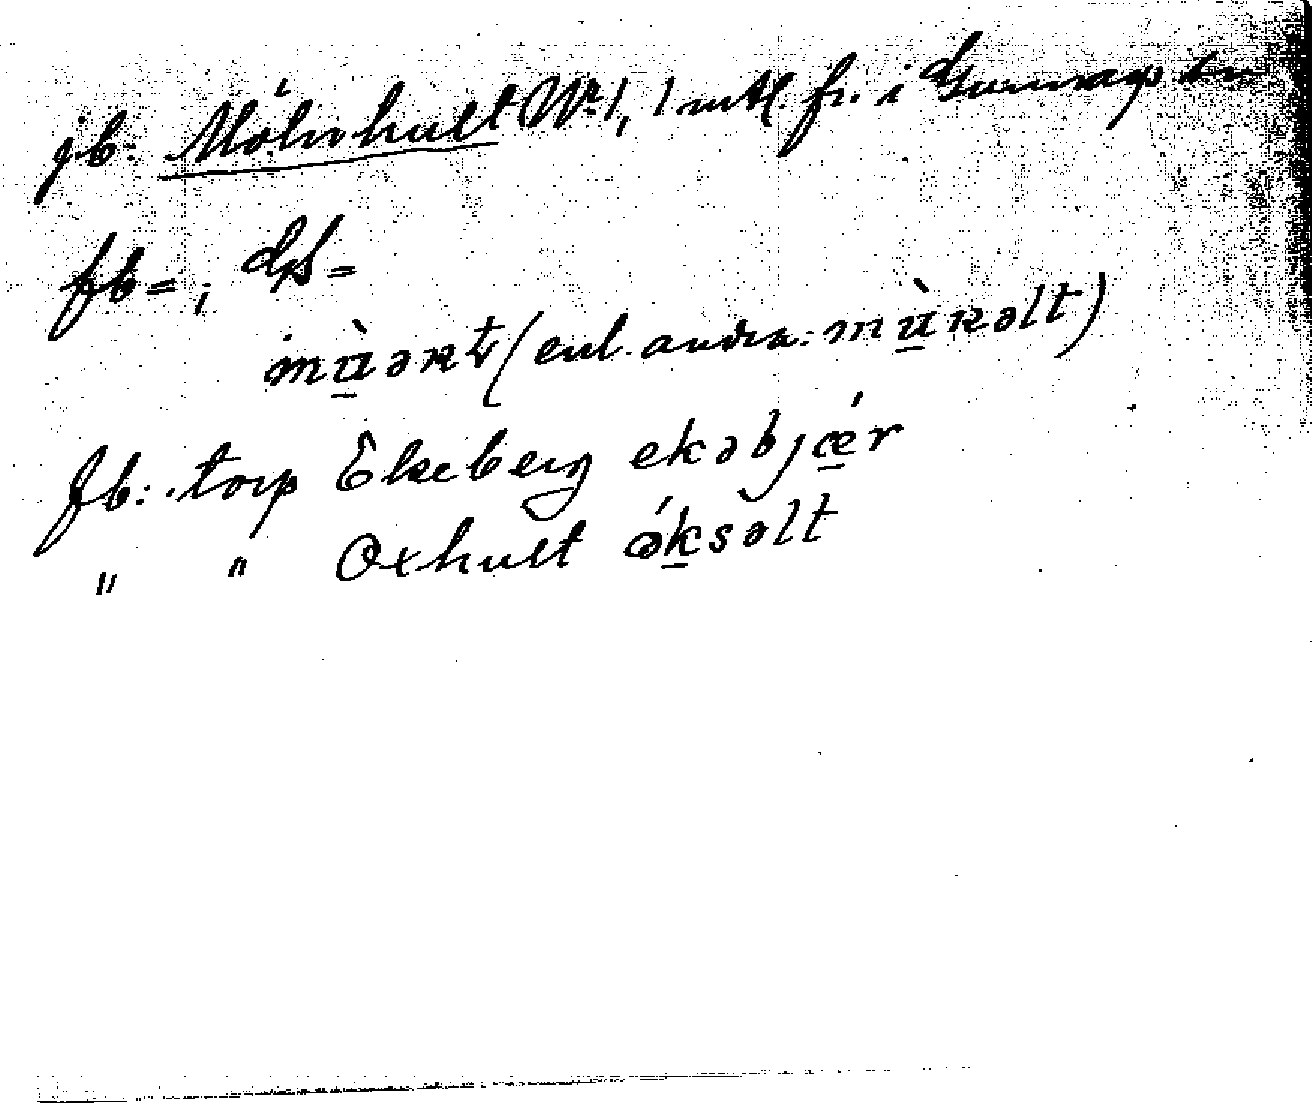 jb: Mölnhult Nr 1, 1 mtl. fr. i Gunnarp sn
fb=; GS=
mù̱əʀt (enl. andra: mù̱ʀəlt)
fb: torp Ekeberg ekəbjǽ̱r
" " Oxhult óḵsəlt